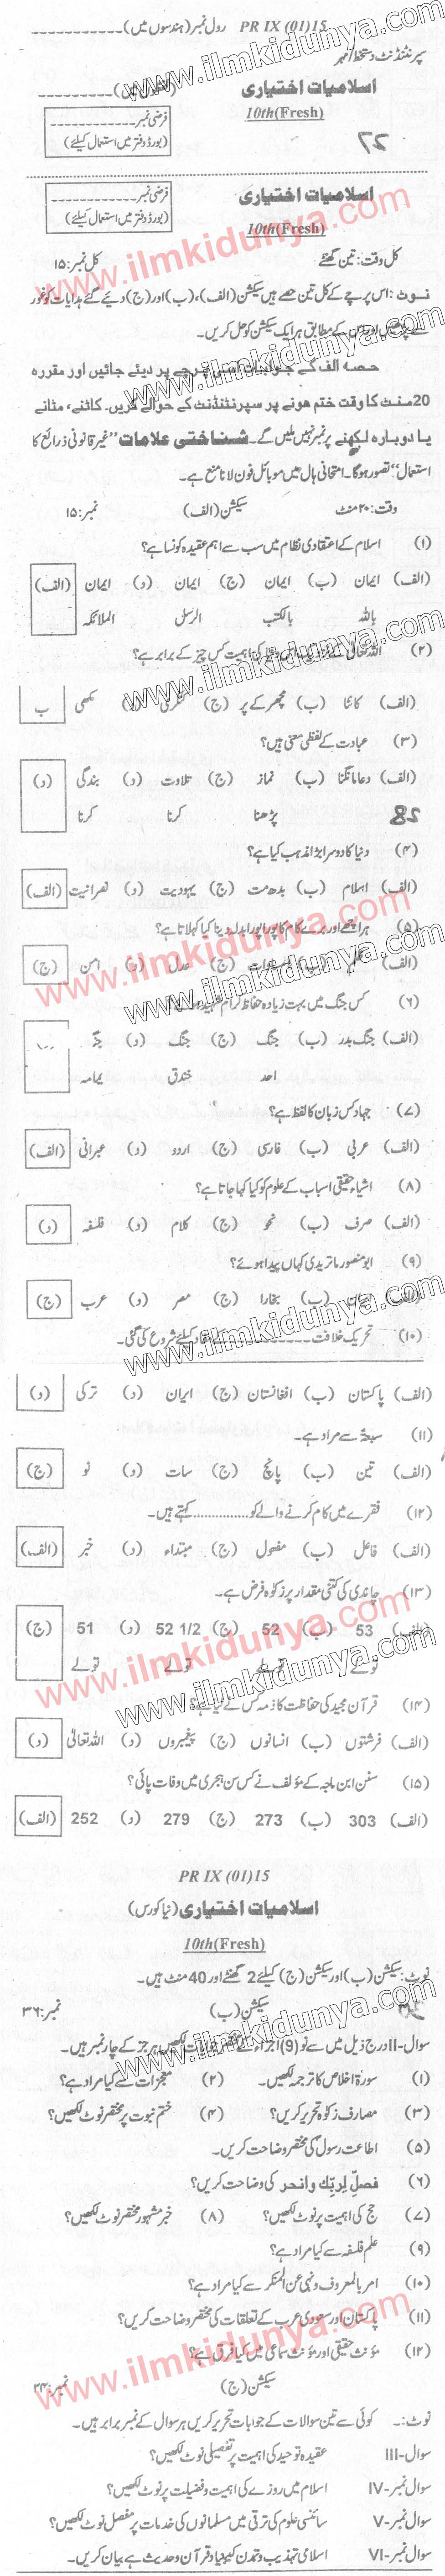 PR IX (01)15 رول نمبر (ہندسوں میں)۔۔۔۔۔۔۔۔۔۔
سپرنٹنڈنٹ دستخط/مہر
اسلامیات اختیاری
10th(Fresh)
فرضی نمبر۔۔۔۔۔۔۔۔۔۔
(بورڈ دفتر میں استعمال کیلئے)
27
اسلامیات اختیاری
10th(Fresh)
فرضی نمبر۔۔۔۔۔۔۔۔۔۔
(بورڈ دفتر میں استعمال کیلئے)
کل وقت: تین گھنٹے کل نمبر: ۱۵
نوٹ: اس پرچے کے کل تین حصے ہیں سیکشن (الف)، (ب) اور (ج) دیئے گئے ہدایات کو غور
سے پڑھیں اور اس کے مطابق ہر ایک سیکشن کو حل کریں۔
حصہ الف کے جوابات اسی پرچے پر دیئے جائیں اور مقررہ
20 منٹ کا وقت ختم ہونے پر سپرنٹنڈنٹ کے حوالے کریں۔ کاٹنے، مٹانے
یا دوبارہ لکھنے پر نمبر نہیں ملیں گے۔ شناختی علامات "غیر قانونی ذرائع کا
استعمال" تصور ہوگا۔ امتحانی ہال میں موبائل فون لانا منع ہے۔
وقت: ۲۰ منٹ سیکشن (الف) نمبر: ۱۵
(۱) اسلام کے اعتقادی نظام میں سب سے اہم عقیدہ کونسا ہے؟
(الف) ایمان (ب) ایمان (ج) ایمان (د) ایمان (الف)
باللہ بالکتب الرسل الملائکہ
(۲) اللہ تعالیٰ کے نزدیک اس دنیا کی اہمیت کس چیز کے برابر ہے؟
(الف) کانٹا (ب) مچھر کے پر (ج) کنکری (د) مکھی ب
(۳) عبادت کے لفظی معنی ہیں؟
(الف) دعا مانگنا (ب) نماز (ج) تلاوت (د) بندگی (د)
پڑھنا کرنا کرنا
28
(۴) دنیا کا دوسرا بڑا مذہب کیا ہے؟
(الف) اسلام (ب) بدھ مت (ج) یہودیت (د) نصرانیت (الف)
(۵) ہر اچھے اور برے کام کا پورا پورا بدلہ دینا کیا کہلاتا ہے؟
(الف) ظلم (ب) مساوات (ج) عدل (د) امن (ج)
(۶) کس جنگ میں بہت زیادہ حفاظ کرام شہید ہوئے؟
(الف) جنگ بدر (ب) جنگ (ج) جنگ (د)
احد خندق یمامہ
(۷) جہاد کس زبان کا لفظ ہے؟
(الف) عربی (ب) فارسی (ج) اردو (د) عبرانی (الف)
(۸) اشیاء حقیقی اسباب کے علوم کو کیا کہا جاتا ہے؟
(الف) صرف (ب) نحو (ج) کلام (د) فلسفہ (د)
(۹) ابو منصور ماتریدی کہاں پیدا ہوئے؟
(الف) (ب) بخارا (ج) مصر (د) عرب (ج)
(۱۰) تحریک خلافت۔۔۔۔۔۔۔۔۔۔ کیلئے شروع کی گئی۔
(الف) پاکستان (ب) افغانستان (ج) ایران (د) ترکی (د)
(۱۱) سبعۃ سے مراد ہے۔
(الف) تین (ب) پانچ (ج) سات (د) نو (ج)
(۱۲) فقرے میں کام کرنے والے کو.............. کہتے ہیں۔
(الف) فاعل (ب) مفعول (ج) مبتداء (د) خبر (الف)
(۱۳) چاندی کی کتنی مقدار پر زکوٰۃ فرض ہے۔
(الف) 53 (ب) 52 (ج) 52 1/2 (د) 51 (ج)
تولے تولے تولے تولے
(۱۴) قرآن مجید کی حفاظت کا ذمہ کس نے لیا ہے؟
(الف) فرشتوں (ب) انسانوں (ج) پیغمبروں (د) اللہ تعالیٰ (د)
(۱۵) سنن ابن ماجہ کے مؤلف نے کس سن ہجری میں وفات پائی؟
(الف) 303 (ب) 273 (ج) 279 (د) 252 (الف)
PR IX (01)15
اسلامیات اختیاری (نیا کورس)
10th(Fresh)
نوٹ: سیکشن (ب) اور سیکشن (ج) کیلئے 2 گھنٹے اور 40 منٹ ہیں۔
سیکشن (ب) نمبر: ۳۶
سوال-II درج ذیل میں سے نو (9) اجزاء کے مختصر جوابات لکھیں ہر جز کے چار نمبر ہیں۔
(۱) سورۃ اخلاص کا ترجمہ لکھیں۔ (۲) معجزات سے کیا مراد ہے؟
(۳) مصارف زکوٰۃ تحریر کریں؟ (۴) ختم نبوت پر مختصر نوٹ لکھیں؟
(۵) اطاعت رسولؐ کی مختصر وضاحت کریں۔
(۶) فصلّ لربّك وانحر کی وضاحت کریں؟
(۷) حج کی اہمیت پر نوٹ لکھیں؟ (۸) خبر مشہور مختصر نوٹ لکھیں؟
(۹) علم فلسفہ سے کیا مراد ہے؟
(۱۰) امر بالمعروف ونہی عن المنکر سے کیا مراد ہے؟
(۱۱) پاکستان اور سعودی عرب کے تعلقات کی مختصر وضاحت کریں؟
(۱۲) مؤنث حقیقی اور مؤنث سماعی میں کیا فرق ہے؟
سیکشن (ج) نمبر: ۲۴
نوٹ:۔ کوئی سے تین سوالات کے جوابات تحریر کریں ہر سوال کے نمبر برابر ہیں۔
سوال-III عقیدہ توحید کی اہمیت پر تفصیلی نوٹ لکھیں؟
سوال نمبر-IV اسلام میں روزے کی اہمیت و فضیلت پر نوٹ لکھیں؟
سوال نمبر-V سائنسی علوم کی ترقی میں مسلمانوں کی خدمات پر مفصل نوٹ لکھیں؟
سوال نمبر-VI اسلامی تہذیب و تمدن کی بنیاد قرآن و حدیث ہے بیان کریں۔
www.ilmkidunya.com